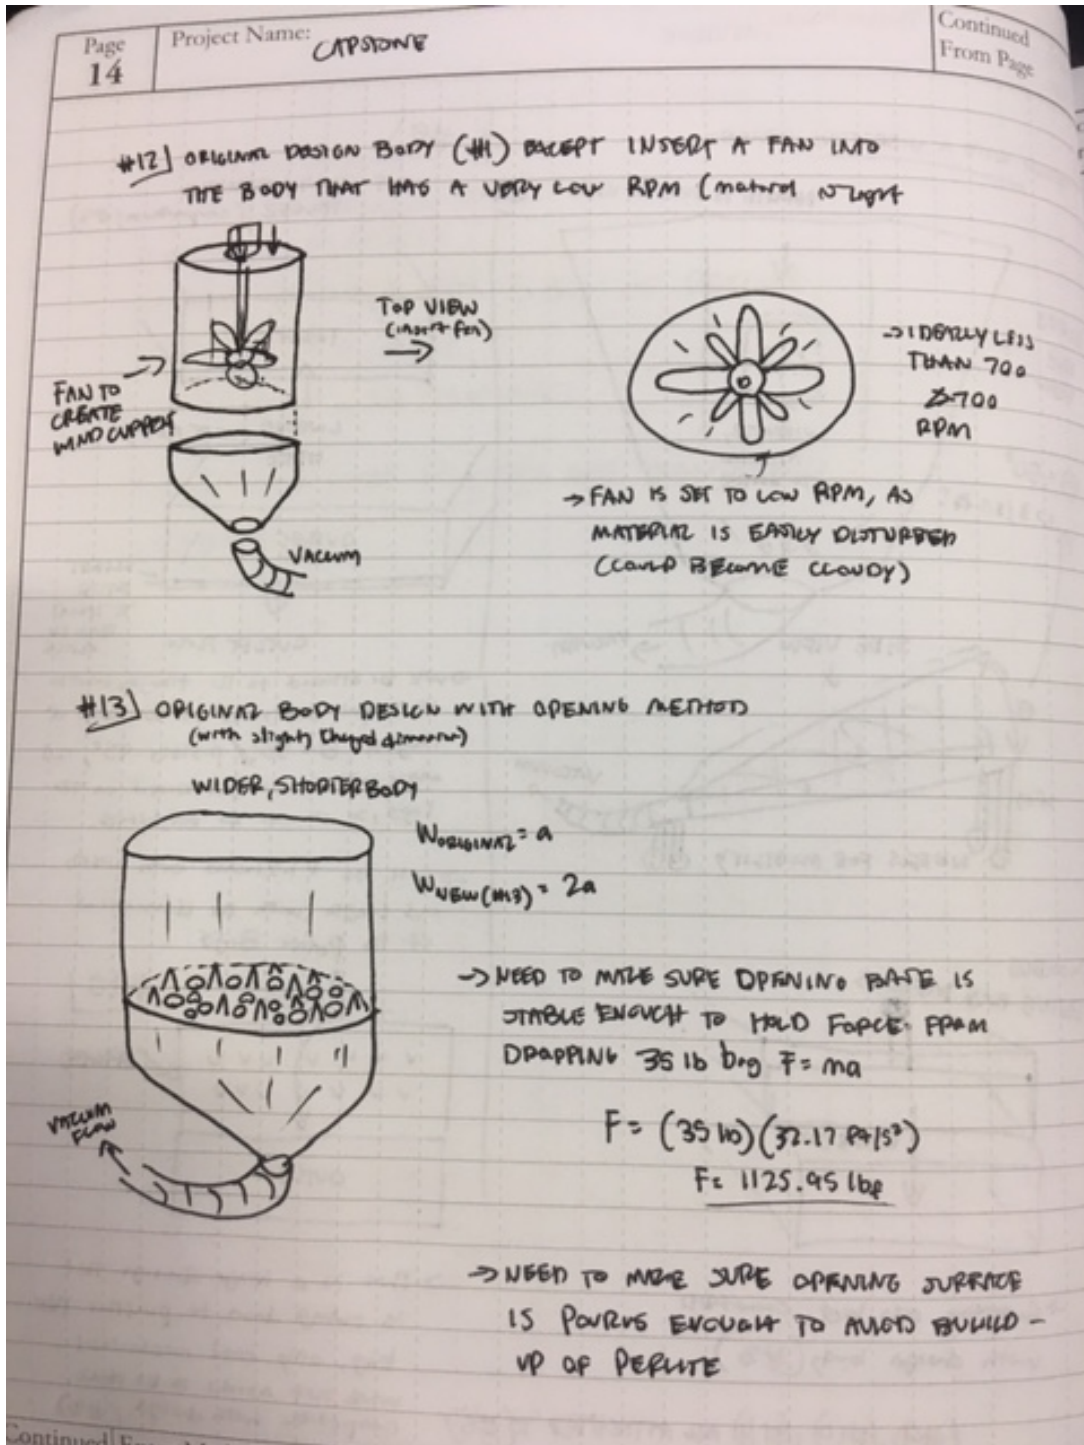 Page
14
Project Name: CAPSTONE
Continued
From Page
#12) ORIGINAL DESIGN BODY (#1) EXCEPT INSERT A FAN INTO
THE BODY THAT HAS A VERY LOW RPM (material is light
TOP VIEW
(insert fan)
FAN TO
CREATE
WIND CURRENT
VACUUM
→ IDEALLY LESS
THAN 700
700
RPM
→ FAN IS SET TO LOW RPM, AS
MATERIAL IS EASILY DISTURBED
(COULD BECOME CLOUDY)
#13) ORIGINAL BODY DESIGN WITH OPENING METHOD
(with slightly changed dimension)
WIDER, SHORTER BODY
WORIGINAL = a
WNEW (#13) = 2a
→ NEED TO MAKE SURE OPENING BASE IS
STABLE ENOUGH TO HOLD FORCE FROM
DROPPING 35 lb bag F = ma
F = (35 lb)(32.17 ft/s²)
F = 1125.95 lbf
VACUUM
FLOW
→ NEED TO MAKE SURE OPENING SURFACE
IS POURUS ENOUGH TO AVOID BUILD-
UP OF PERLITE
Continued